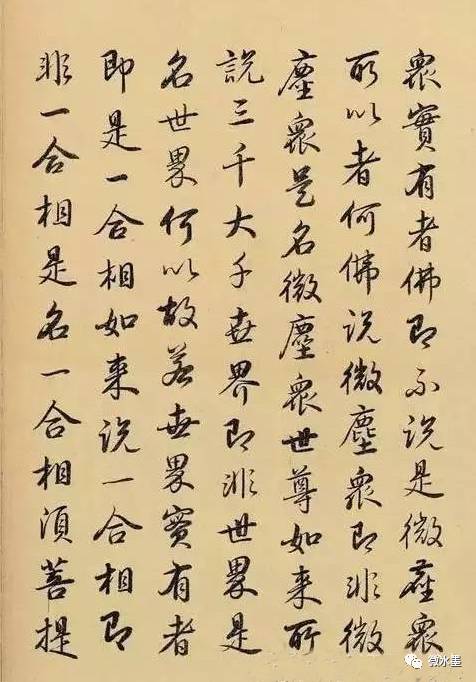 衆實有者佛即不說是微塵衆
所以者何佛說微塵衆即非微
塵衆是名微塵衆世尊如来所
說三千大千世界即非世界是
名世界何以故若世界實有者
即是一合相如来說一合相即
非一合相是名一合相須菩提
微水墨